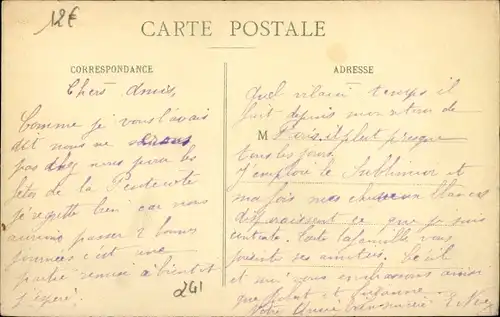 12€
CARTE POSTALE
CORRESPONDANCE
Chers Amis,
Comme je vous l'avais
dit nous ne irons
pas chez nous pour les
fêtes de la Pentecote
je regrette bien car nous
aurions passer 2 bonnes
journées c'est une
partie remise à bientôt
j'espère.
241
ADRESSE
Quel vilain temps il
fait depuis mon retour de
M
Paris, il pleut presque
tous les jours.
J'emploie le
et
ma fois mes cheveux blancs
disparaissent ce que je suis
contente. Toute la famille vous
ses amitiés. Cécil
et moi vous embrassons ainsi
que et Suzanne.
Votre Amie